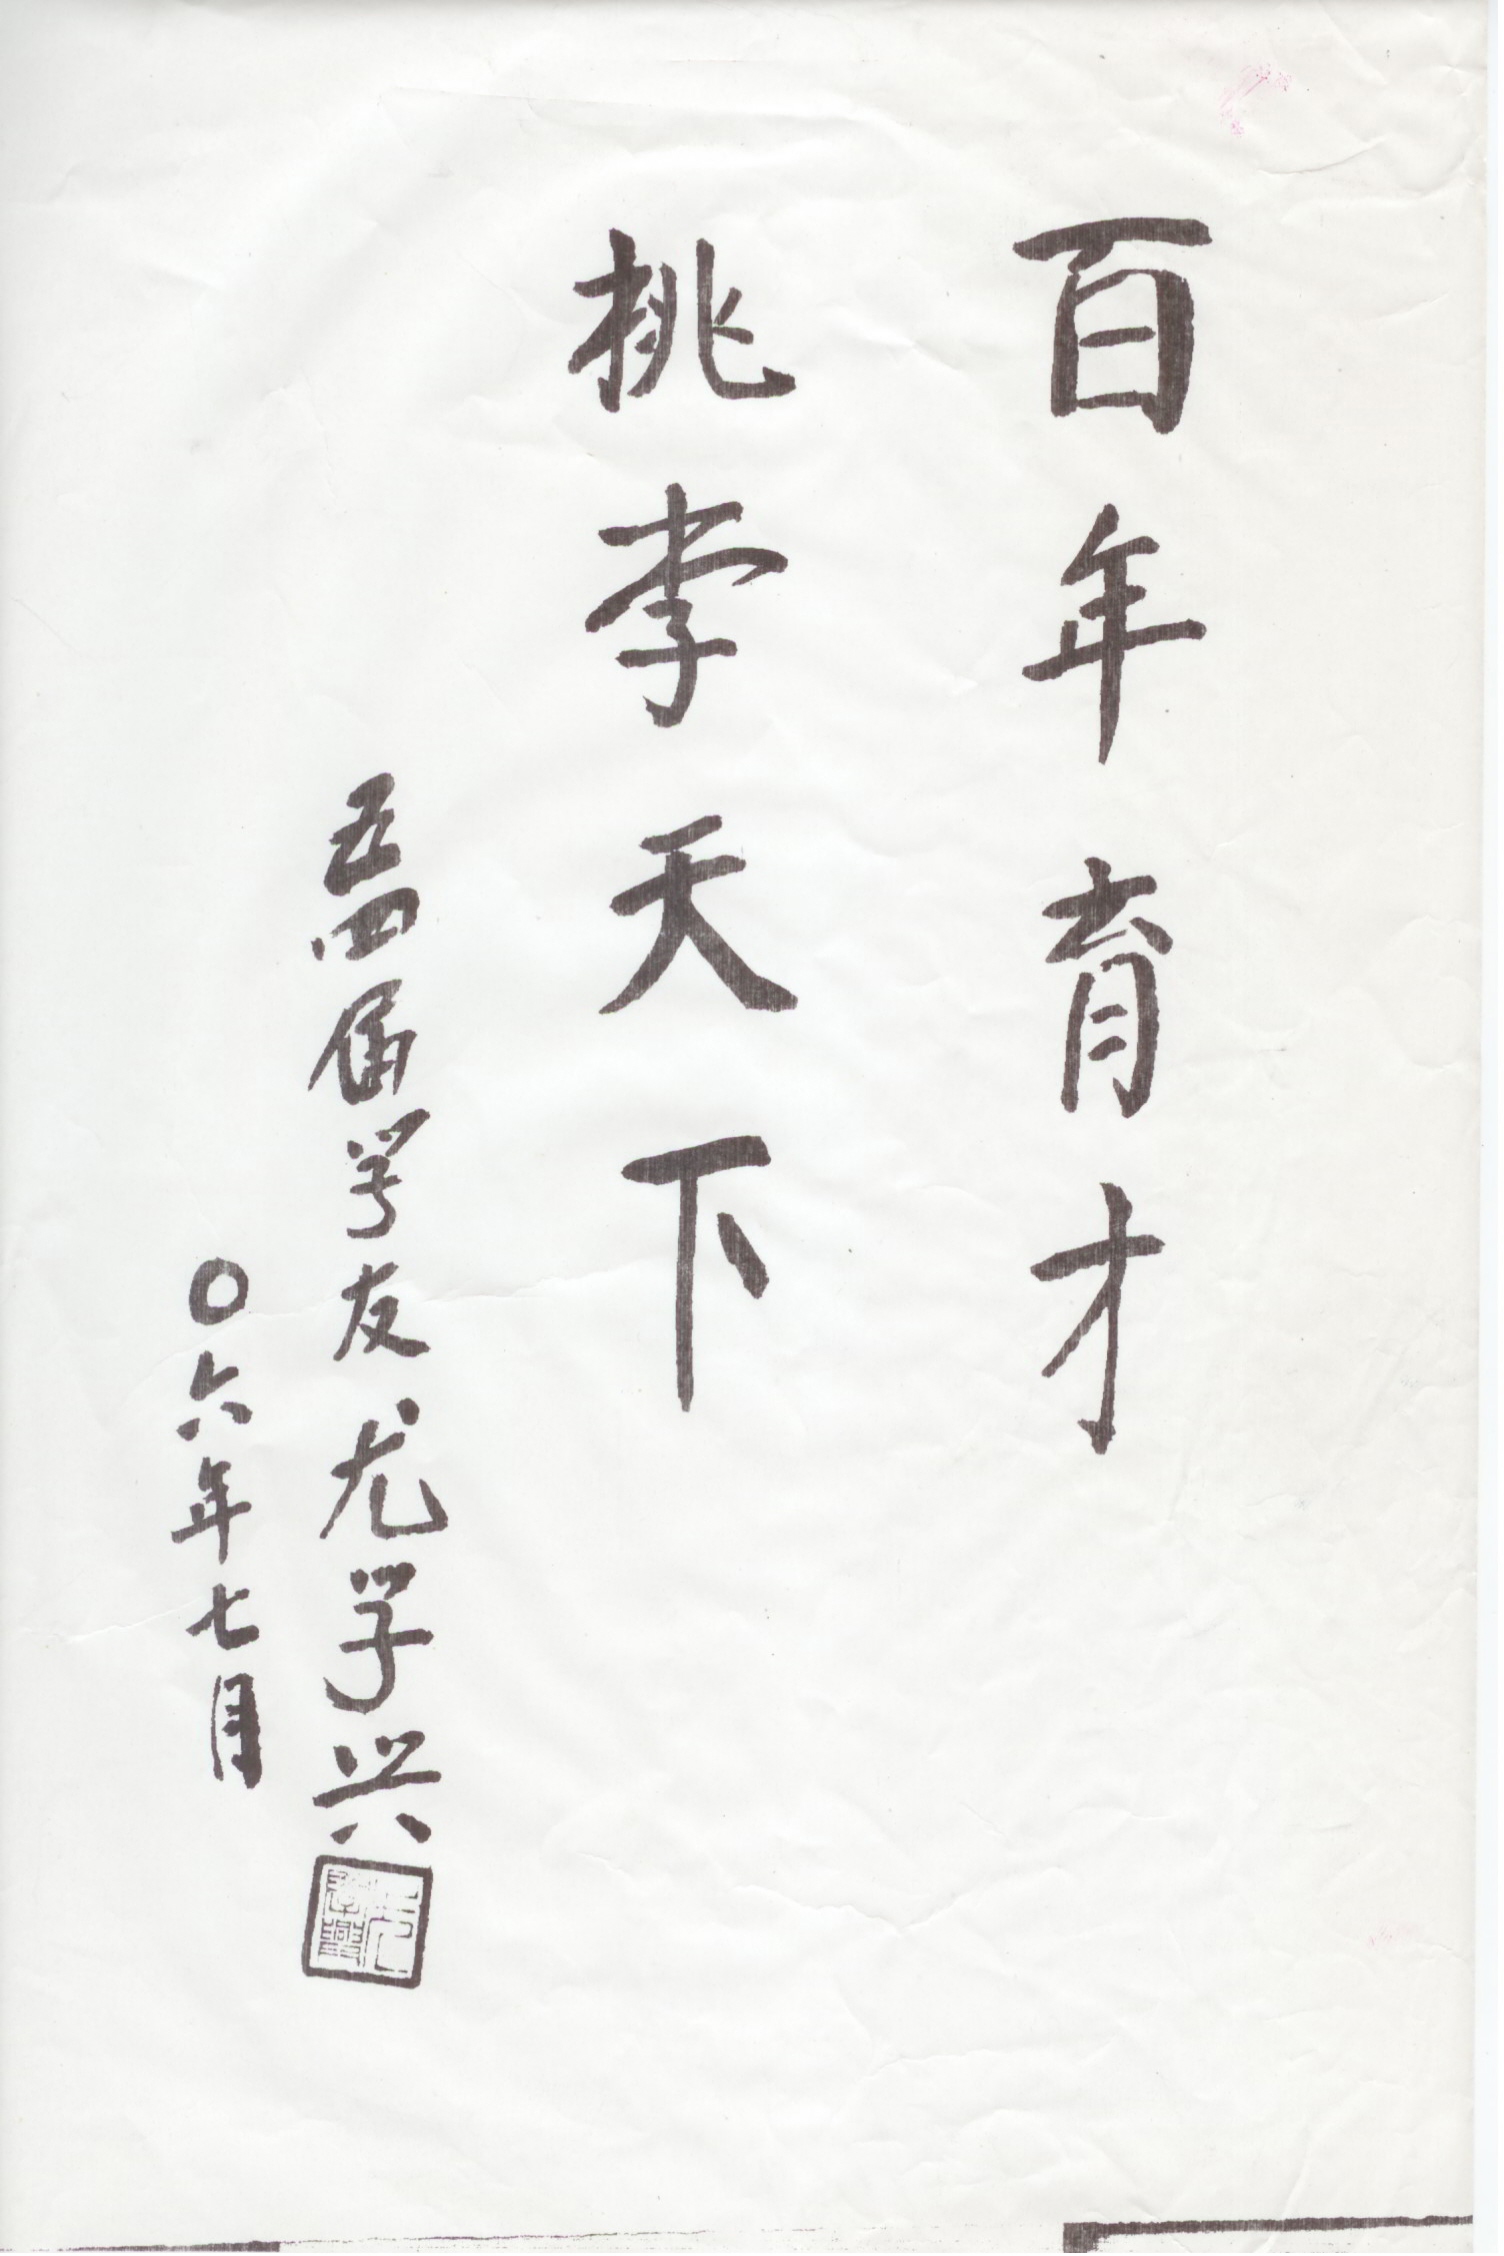 百年育才
桃李天下
五四届学友尤学兴
〇六年七月